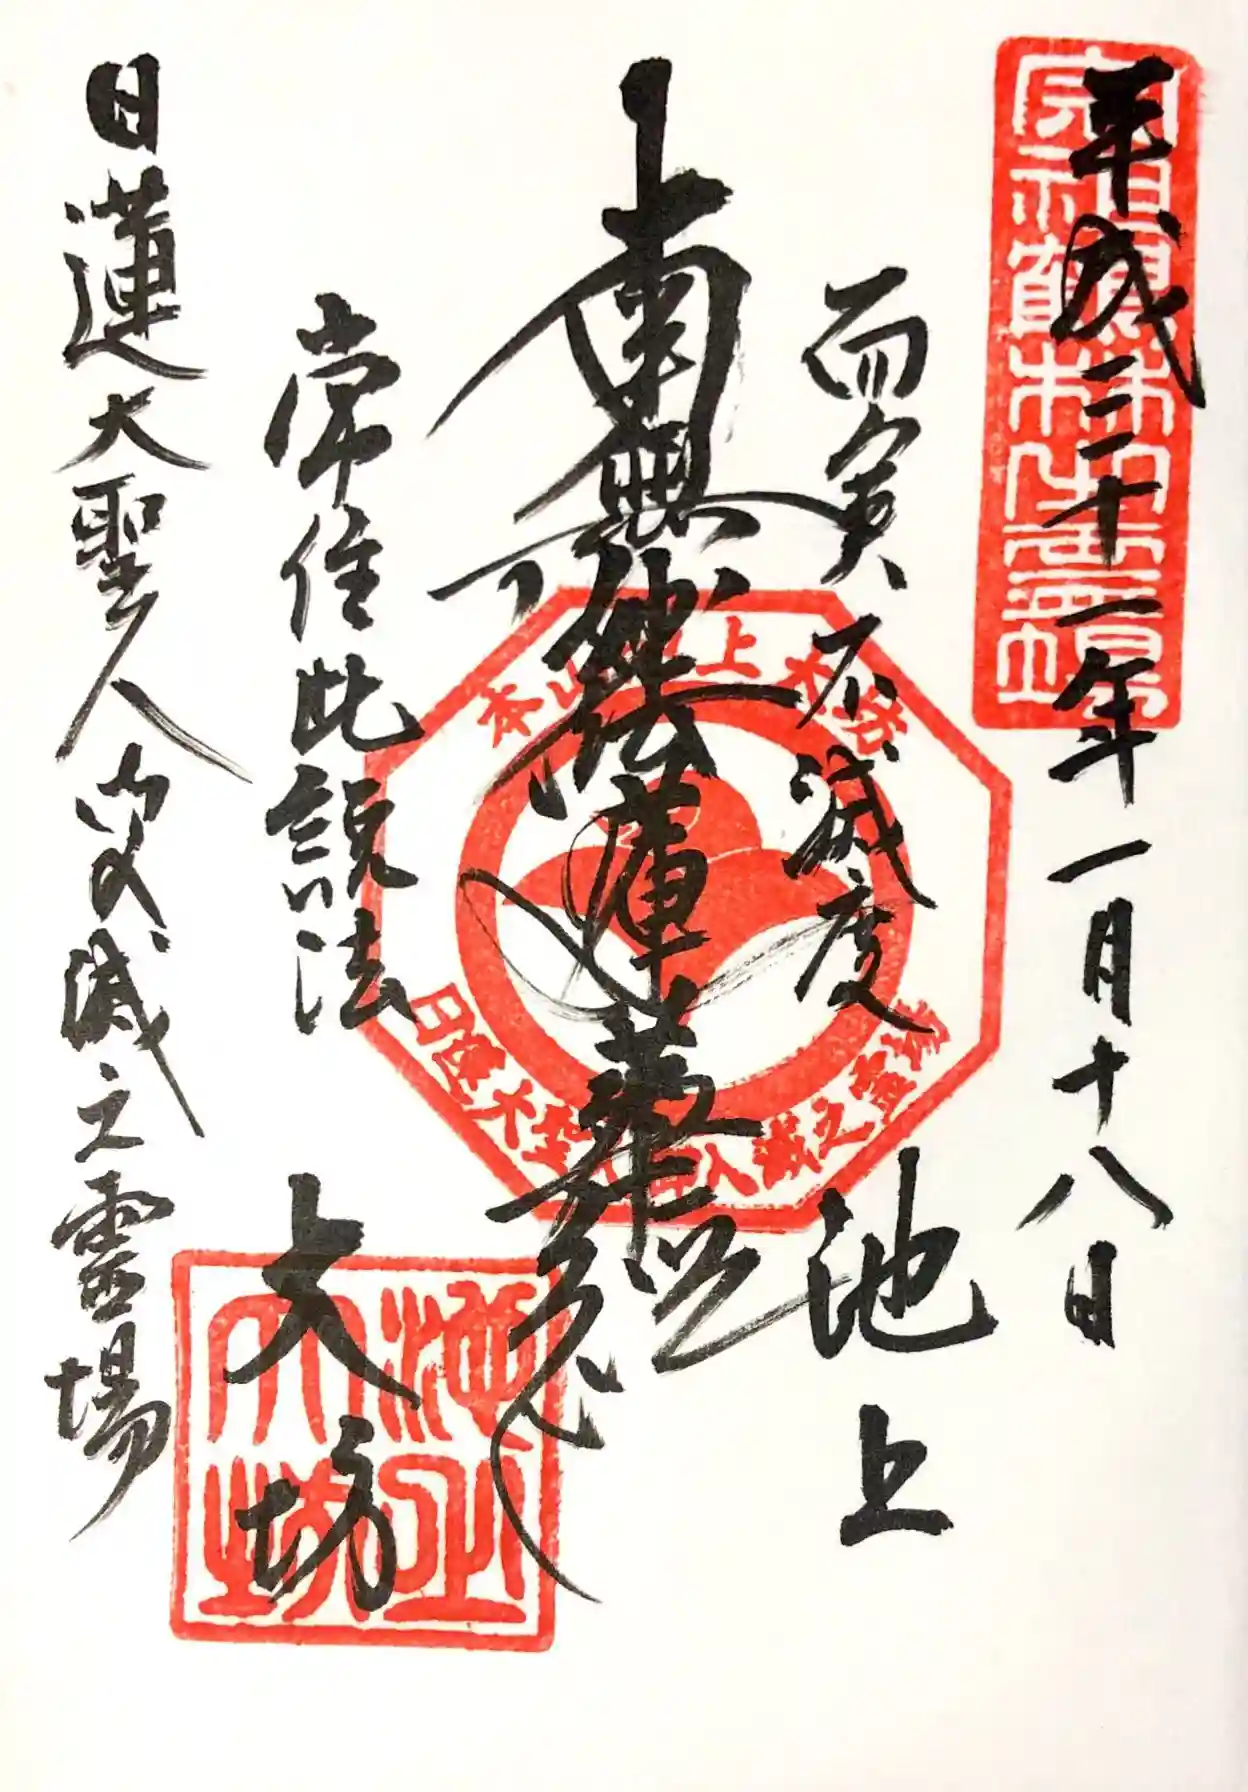 平成三十一年一月十八日
而実不滅度
池上
南無妙法蓮華経
常住此説法
大坊
日蓮大聖人御入滅之霊場
宗祖顕林御霊場
日蓮大聖人御入滅之霊場
池上
大坊